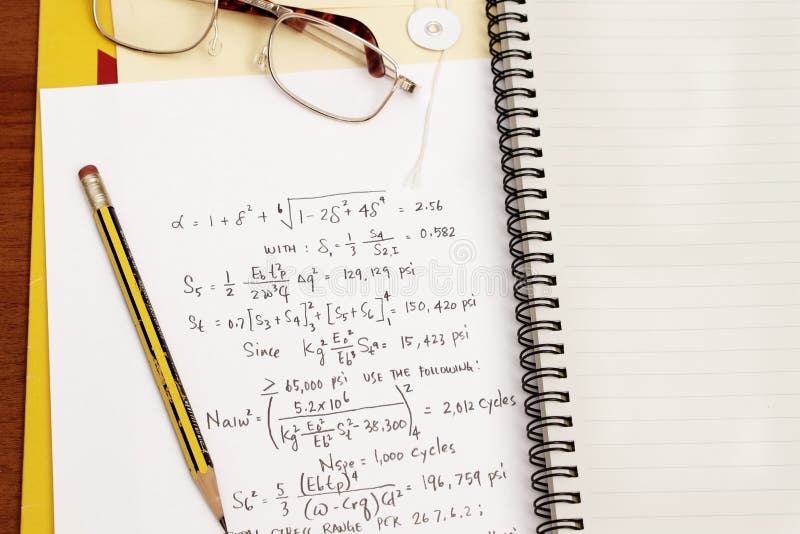 α = 1 + δ² + ⁶√(1 - 2δ² + 4δ⁴) = 2.56
WITH : δ₁ = 1/3 S₄/S₂,I = 0.582
S₅ = 1/2 Ebt²p/2ω³q Δq² = 129,129 psi
St = 0.7[S₃ + S₄]²₃ + [S₅ + S₆]⁴₁ = 150,420 psi
Since Kg² E₀²/Eb³ St⁹ = 15,423 psi
≥ 65,000 psi USE THE FOLLOWING:
Nalw² = (5.2x10⁶ / Kg² E₀²/Eb² St² - 38,300)²₄ = 2,012 cycles
Nspe = 1,000 cycles
S₆² = 5/3 (Ebtp)⁴/(ω - Crq)Cd² = 196,759 psi
STRESS RANGE PER 267,6.2;
dreamstime